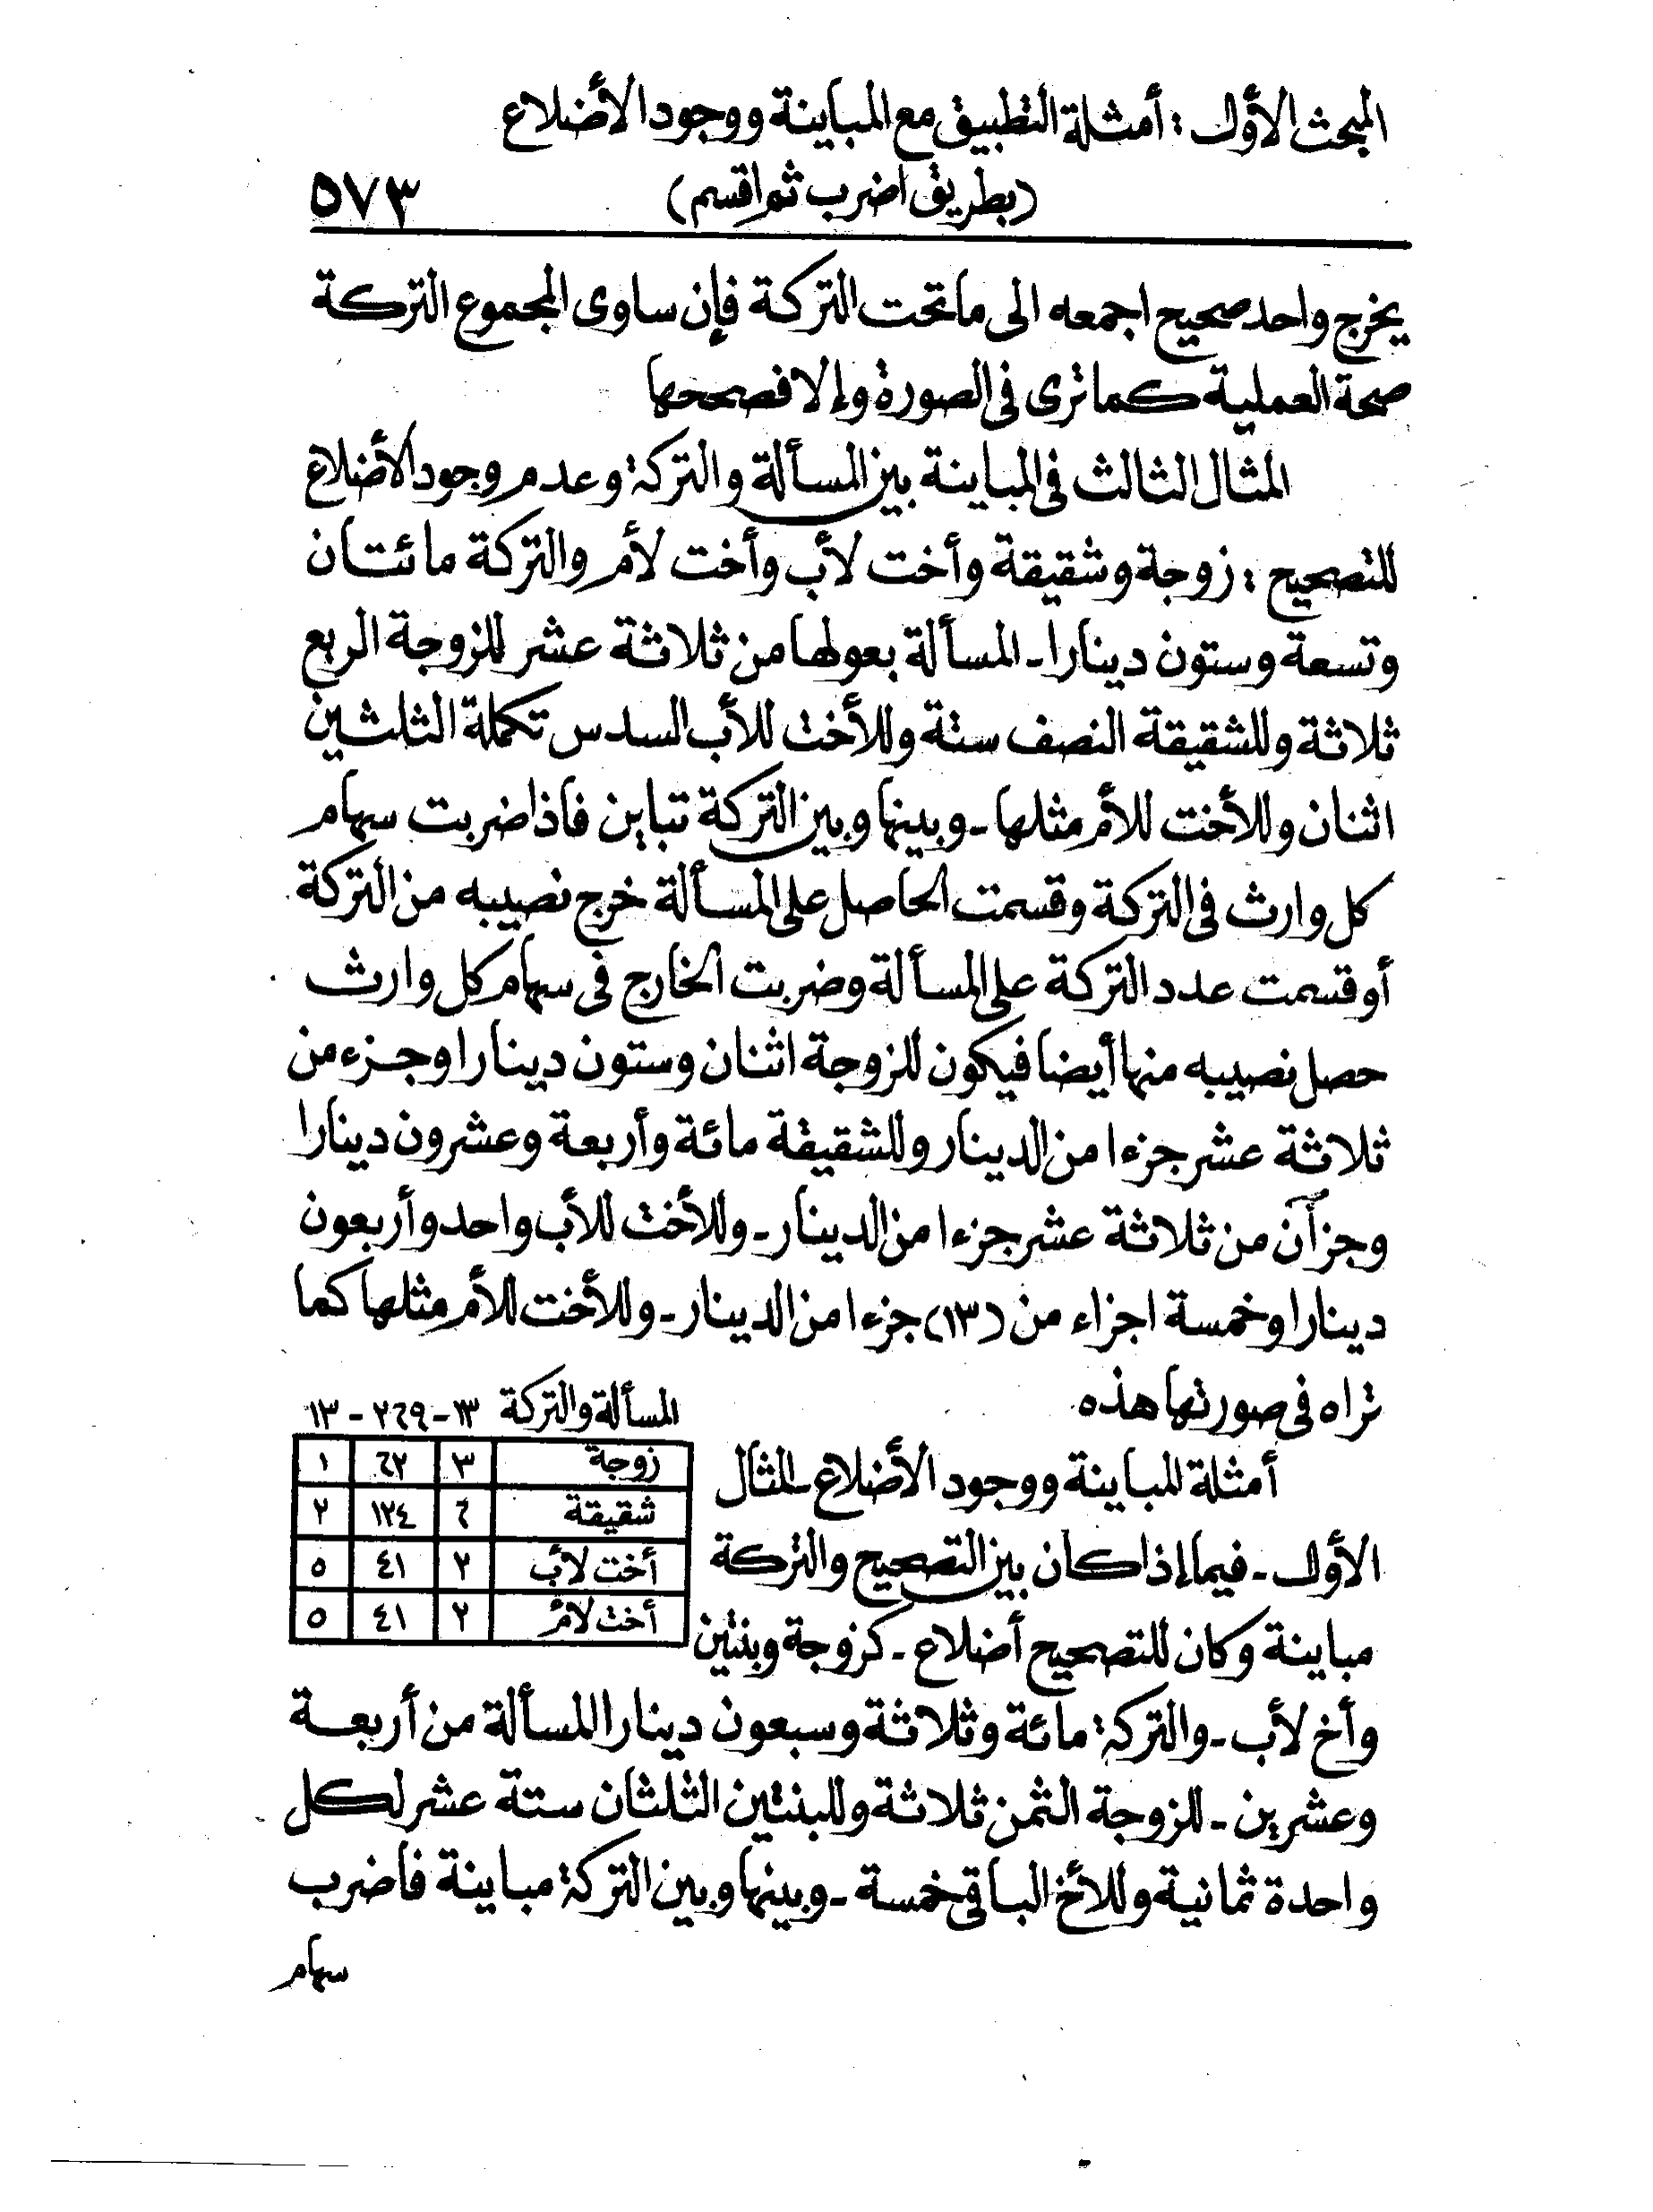 المبحث الأول : أمثلة التطبيق مع المباينة ووجود الأضلاع
(بطريق اضرب ثم اقسم)
٥٧٣
يخرج واحد صحيح اجمعه الى ما تحت التركة فإن ساوى المجموع التركة
صحة العملية كما ترى في الصورة وإلا فصححها
المثال الثالث في المباينة بين المسألة والتركة وعدم وجود الأضلاع
للتصحيح : زوجة وشقيقة وأخت لأب وأخت لأم والتركة مائتان
وتسعة وستون دينارا - المسألة بعولها من ثلاثة عشر للزوجة الربع
ثلاثة وللشقيقة النصف ستة وللأخت للأب السدس تكملة الثلثين
اثنان وللأخت للأم مثلها - وبينها وبين التركة تباين فاذا ضربت سهام
كل وارث في التركة وقسمت الحاصل على المسألة خرج نصيبه من التركة
أو قسمت عدد التركة على المسألة وضربت الخارج في سهام كل وارث
حصل نصيبه منها أيضا فيكون للزوجة اثنان وستون دينارا وجزء من
ثلاثة عشر جزءا من الدينار وللشقيقة مائة وأربعة وعشرون دينارا
وجزآن من ثلاثة عشر جزءا من الدينار - وللأخت للأب واحد وأربعون
دينارا وخمسة اجزاء من (١٣) جزءا من الدينار - وللأخت للأم مثلها كما
تراه في صورتها هذه
المسألة والتركة ١٣ - ٢٦٩ - ١٣
زوجة ٣ ٦٢ ١
شقيقة ٦ ١٢٤ ٢
أخت لأب ٢ ٤١ ٥
أخت لأم ٢ ٤١ ٥
أمثلة المباينة ووجود الأضلاع - المثال
الأول - فيما إذا كان بين التصحيح والتركة
مباينة وكان للتصحيح أضلاع - كزوجة وبنتين
وأخ لأب - والتركة مائة وثلاثة وسبعون دينارا المسألة من أربعة
وعشرين - للزوجة الثمن ثلاثة وللبنتين الثلثان ستة عشر لكل
واحدة ثمانية وللأخ الباقي خمسة - وبينها وبين التركة مباينة فاضرب
سهام